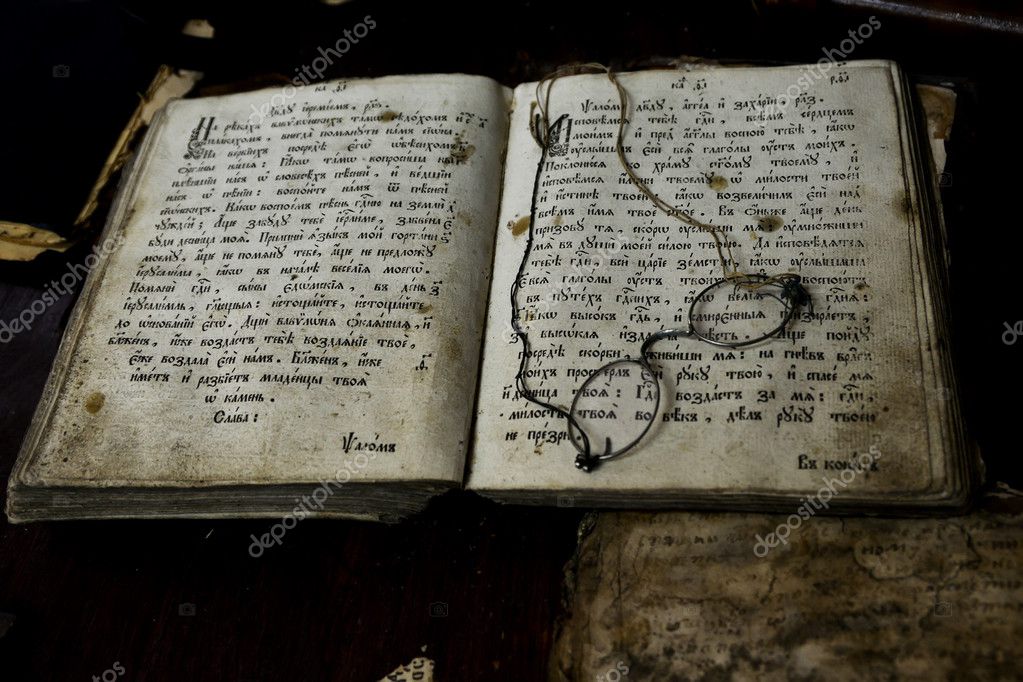 Дв҃ду і҆еремїемъ, рл҃ѕ.
На рѣкахъ вавѷлѡнскихъ тамѡ сѣдохомъ и҆
плакахомъ, внегда помѧнути намъ сїѡна.
На вербїихъ посредѣ є҆гѡ ѡ҆бѣсихомъ
ѻ҆рганы нашѧ: Ꙗ҆кѡ тамѡ вопросиша ны
плѣншїи насъ ѡ҆ словесѣхъ пѣсней, и҆ ведшїи
насъ ѡ҆ пѣнїи: воспойте намъ ѿ пѣсней
сїѡнскихъ. Какѡ воспоемъ пѣснь гдⷭ҇ню на земли
чꙋждей; Аще забꙋдꙋ тебе і҆ерⷭ҇лиме, забвена
бꙋди десница моѧ. Прильпни ѧ҆зыкъ мой гортани
моемꙋ, а҆ще не помѧнꙋ тебе, а҆ще не предложꙋ
і҆ерꙋсалима, ꙗ҆кѡ въ началѣ веселїѧ моегѡ.
Помѧни гдⷭ҇и, сыны є҆дѡмскїѧ, въ день
і҆ерꙋсалимль, глаго́лющыѧ: и҆стощайте, и҆стощайте
до ѡ҆снованїй є҆гѡ. Дщи вавѷлѡнѧ ѻ҆каѧннаѧ,
блаженъ, и҆же воздастъ тебѣ воздаѧнїе твое,
є҆же воздала є҆сѝ намъ. Блаженъ, и҆же
и҆метъ и҆ разбїетъ младенцы твоѧ
ѡ҆ камень.
Слава:
Ѱаломъ
рл҃з
Ѱаломъ дв҃дꙋ, а҆ггеа и҆ захарїи, рл҃з.
Исповѣмсѧ тебѣ гдⷭ҇и, всѣмъ сердцемъ
моимъ, и҆ пред̾ а҆гг҃лы воспою тебѣ, ꙗ҆кѡ
ꙋслышалъ є҆сѝ всѧ глаголы ꙋ҆стъ моихъ.
Поклонюсѧ ко храмꙋ ст҃омꙋ твоемꙋ, и҆
и҆сповѣмсѧ и҆мени твоемꙋ ѡ҆ милости твоей
и҆ и҆стинѣ твоей, ꙗ҆кѡ возвеличилъ є҆сѝ над̾
всѣмъ и҆мѧ твое ст҃ое. Въ ѻ҆ньже а҆ще день
призовꙋ тѧ, скорѡ ꙋ҆слыши мѧ: ꙋ҆множиши
мѧ въ дꙋши моей силою твоею. Да и҆сповѣдѧтсѧ
тебѣ гдⷭ҇и вси царїе земстїи, ꙗ҆кѡ ꙋ҆слышаша
всѧ глаголы ꙋ҆стъ твоихъ воспоютъ
въ пꙋтехъ гдⷭ҇нихъ, ꙗ҆кѡ велїѧ гдⷭ҇нѧ:
ꙗ҆кѡ высокъ гдⷭ҇ь, и҆ смиренныѧ призираетъ,
и҆ высокаѧ и҆здалеча вѣсть. Аще пойдꙋ
посредѣ скорби, живиши мѧ: на гнѣвъ врагъ
моихъ простерлъ рꙋкꙋ твою, и҆ спасе мѧ
десница твоѧ: Гдⷭ҇ь воздастъ за мѧ: гдⷭ҇и,
милость твоѧ во вѣкъ, дѣлъ рꙋкꙋ твоею
не презри.
Въ конецъ
depositphotos